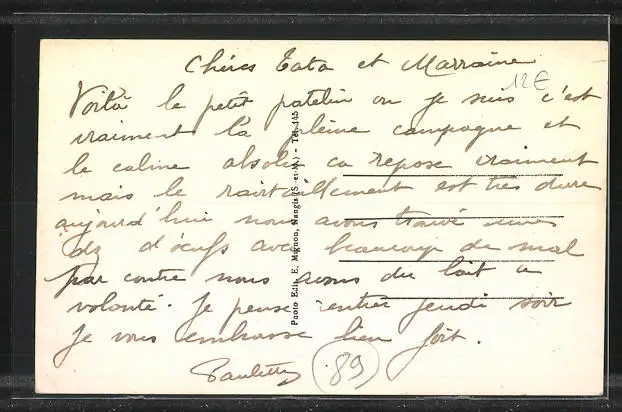 Chères Tata et Marraine
12€
Voilà le petit patelin ou je suis c'est
vraiment la pleine campagne et
le calme absolu ca repose vraiment
mais le ravitaillement est très dure
aujourd'hui nous avons trouvé une
dz d'œufs avec beaucoup de mal
par contre nous avons du lait a
volonté. Je pense rentrer jeudi soir
Je vous embrasse bien fort.
Paulette
89
Photo Edit. E. Mignon, Nangis (S.-et-M.) - Tél. 145